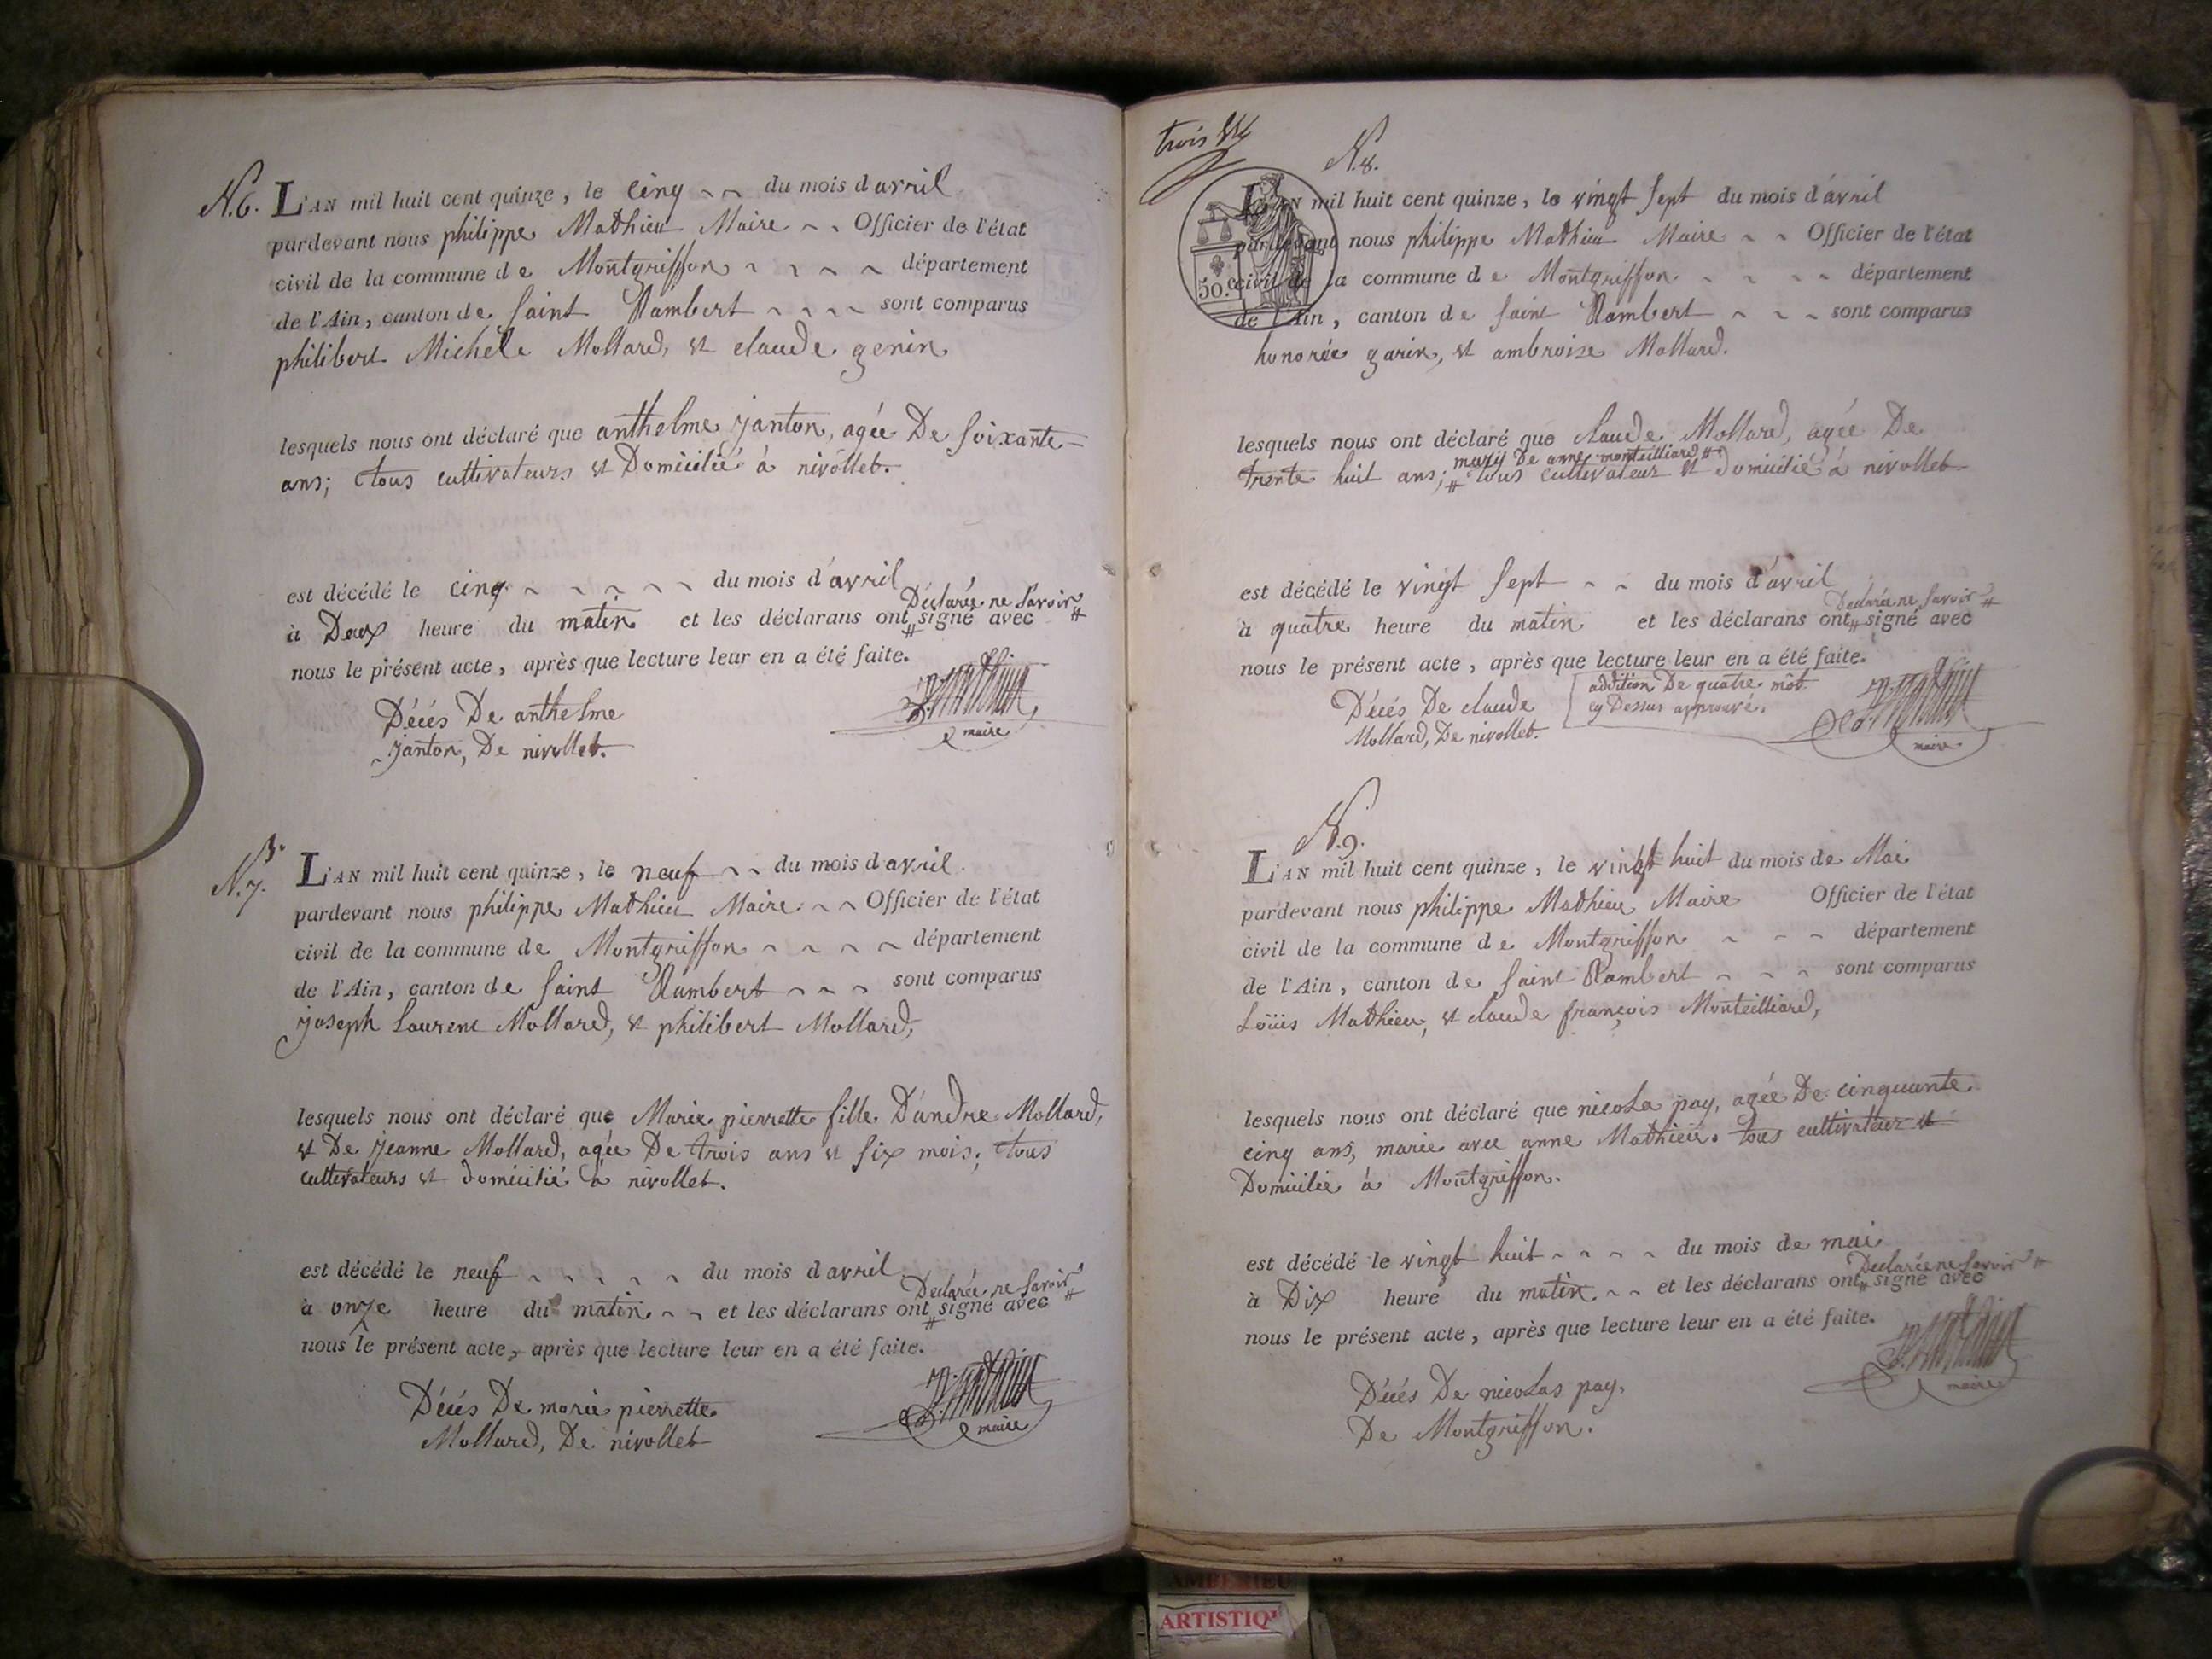 N.6. L'AN mil huit cent quinze, le cinq du mois d'avril
pardevant nous philippe Mathieu Maire Officier de l'état
civil de la commune de Montgriffon département
de l'Ain, canton de Saint Rambert sont comparus
philibert Michele Mollard, et claude genin
lesquels nous ont déclaré que anthelme janton, agée De soixante
ans; tous cultivateurs et Domicilié à nivollet.
est décédé le cinq du mois d'avril
Déclarée ne Savoir #
à Deux heure du matin et les déclarans ont # signé avec
nous le présent acte, après que lecture leur en a été faite.
Décés De anthelme
janton, De nivollet.
maire
N.7. L'AN mil huit cent quinze, le neuf du mois d'avril.
pardevant nous philippe Mathieu Maire Officier de l'état
civil de la commune de Montgriffon département
de l'Ain, canton de Saint Rambert sont comparus
joseph Laurent Mollard, et philibert Mollard,
lesquels nous ont déclaré que Marie pierrette fille D'andre Mollard,
et De jeanne Mollard, agée De trois ans et six mois; tous
cultivateurs et domicilié à nivollet.
est décédé le neuf du mois d'avril
Declarée ne Savoir #
à onze heure du matin et les déclarans ont # signé avec
nous le présent acte, après que lecture leur en a été faite.
Décés De marie pierrette
Mollard, De nivollet
maire
trois
N.8.
50.c
L'AN mil huit cent quinze, le vingt sept du mois d'avril
pardevant nous philippe Mathieu Maire Officier de l'état
civil de la commune de Montgriffon département
de l'Ain, canton de Saint Rambert sont comparus
honorée garin, et ambroise Mollard.
lesquels nous ont déclaré que claude Mollard, agée De
mary De anne monteilliard #
trente huit ans; # tous cultivateur et domicilié à nivollet
est décédé le vingt sept du mois d'avril
Declarée ne Savoir #
à quatre heure du matin et les déclarans ont # signé avec
nous le présent acte, après que lecture leur en a été faite.
addition De quatre mot
cy Dessus approuvé.
Décés De claude
Mollard, De nivollet.
maire
N.9.
L'AN mil huit cent quinze, le vingt huit du mois de Mai
pardevant nous philippe Mathieu Maire Officier de l'état
civil de la commune de Montgriffon département
de l'Ain, canton de Saint Rambert sont comparus
Loüis Mathieu, et claude françois Monteilliard,
lesquels nous ont déclaré que nicola pay, agée De cinquante
cinq ans, marie avec anne Mathieu. tous cultivateur et
Domicilie à Montgriffon.
est décédé le vingt huit du mois de mai
Declarée ne Savoir #
à Dix heure du matin et les déclarans ont # signé avec
nous le présent acte, après que lecture leur en a été faite.
Décés De nicolas pay,
De Montgriffon.
maire
ARTISTIQ